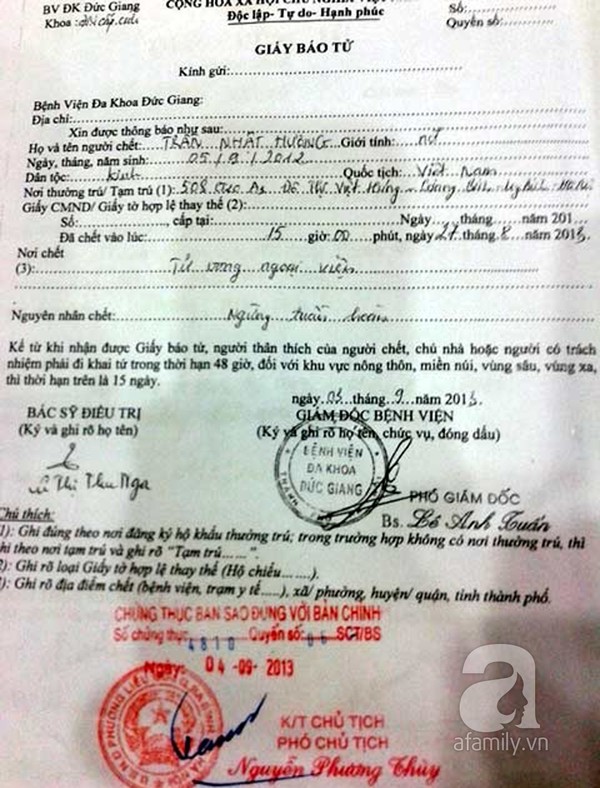 BV ĐK Đức Giang
Khoa:
CỘNG HÒA XÃ HỘI CHỦ NGHĨA VIỆT
Độc lập- Tự do- Hạnh phúc
Số:
Quyển số:
GIẤY BÁO TỬ
Kính gửi:
Bệnh Viện Đa Khoa Đức Giang:
Địa chỉ:
Xin được thông báo như sau:
Họ và tên người chết: TRẦN NHẬT HƯỜNG Giới tính: nữ
Ngày, tháng, năm sinh: 05 / 8 / 2012
Dân tộc: kinh Quốc tịch: Việt Nam
Nơi thường trú/ Tạm trú (1): 508 Đô Thị Việt Hưng
Giấy CMND/ Giấy tờ hợp lệ thay thế (2):
Số:, cấp tại: Ngày tháng năm 201
Đã chết vào lúc: 15 giờ 00 phút, ngày 27 tháng 8 năm 2013
Nơi chết
(3): Tử vong ngoại viện
Nguyên nhân chết: Ngừng tuần hoàn
Kể từ khi nhận được Giấy báo tử, người thân thích của người chết, chủ nhà hoặc người có trách
nhiệm phải đi khai tử trong thời hạn 48 giờ, đối với khu vực nông thôn, miền núi, vùng sâu, vùng xa,
thì thời hạn trên là 15 ngày.
ngày 03 tháng 9 năm 2013
BÁC SỸ ĐIỀU TRỊ
(Ký và ghi rõ họ tên)
GIÁM ĐỐC BỆNH VIỆN
(Ký và ghi rõ họ tên, chức vụ, đóng dấu)
BỆNH VIỆN
ĐA KHOA
ĐỨC GIANG
Thị Thu Nga
PHÓ GIÁM ĐỐC
Bs. Lê Anh Tuấn
Chú thích:
1): Ghi đúng theo nơi đăng ký hộ khẩu thường trú; trong trường hợp không có nơi thường trú, thì
hi theo nơi tạm trú và ghi rõ "Tạm trú......".
2): Ghi rõ loại Giấy tờ hợp lệ thay thế (Hộ chiếu........).
): Ghi rõ địa điểm chết (bệnh viện, trạm y tế.....), xã/ phường, huyện/ quận, tỉnh thành phố.
CHỨNG THỰC BẢN SAO ĐÚNG VỚI BẢN CHÍNH
Số chứng thực 4810 Quyển số: 05 SCT/BS
Ngày: 04 -09- 2013
K/T CHỦ TỊCH
PHÓ CHỦ TỊCH
Nguyễn Phương Thùy
a
afamily.vn